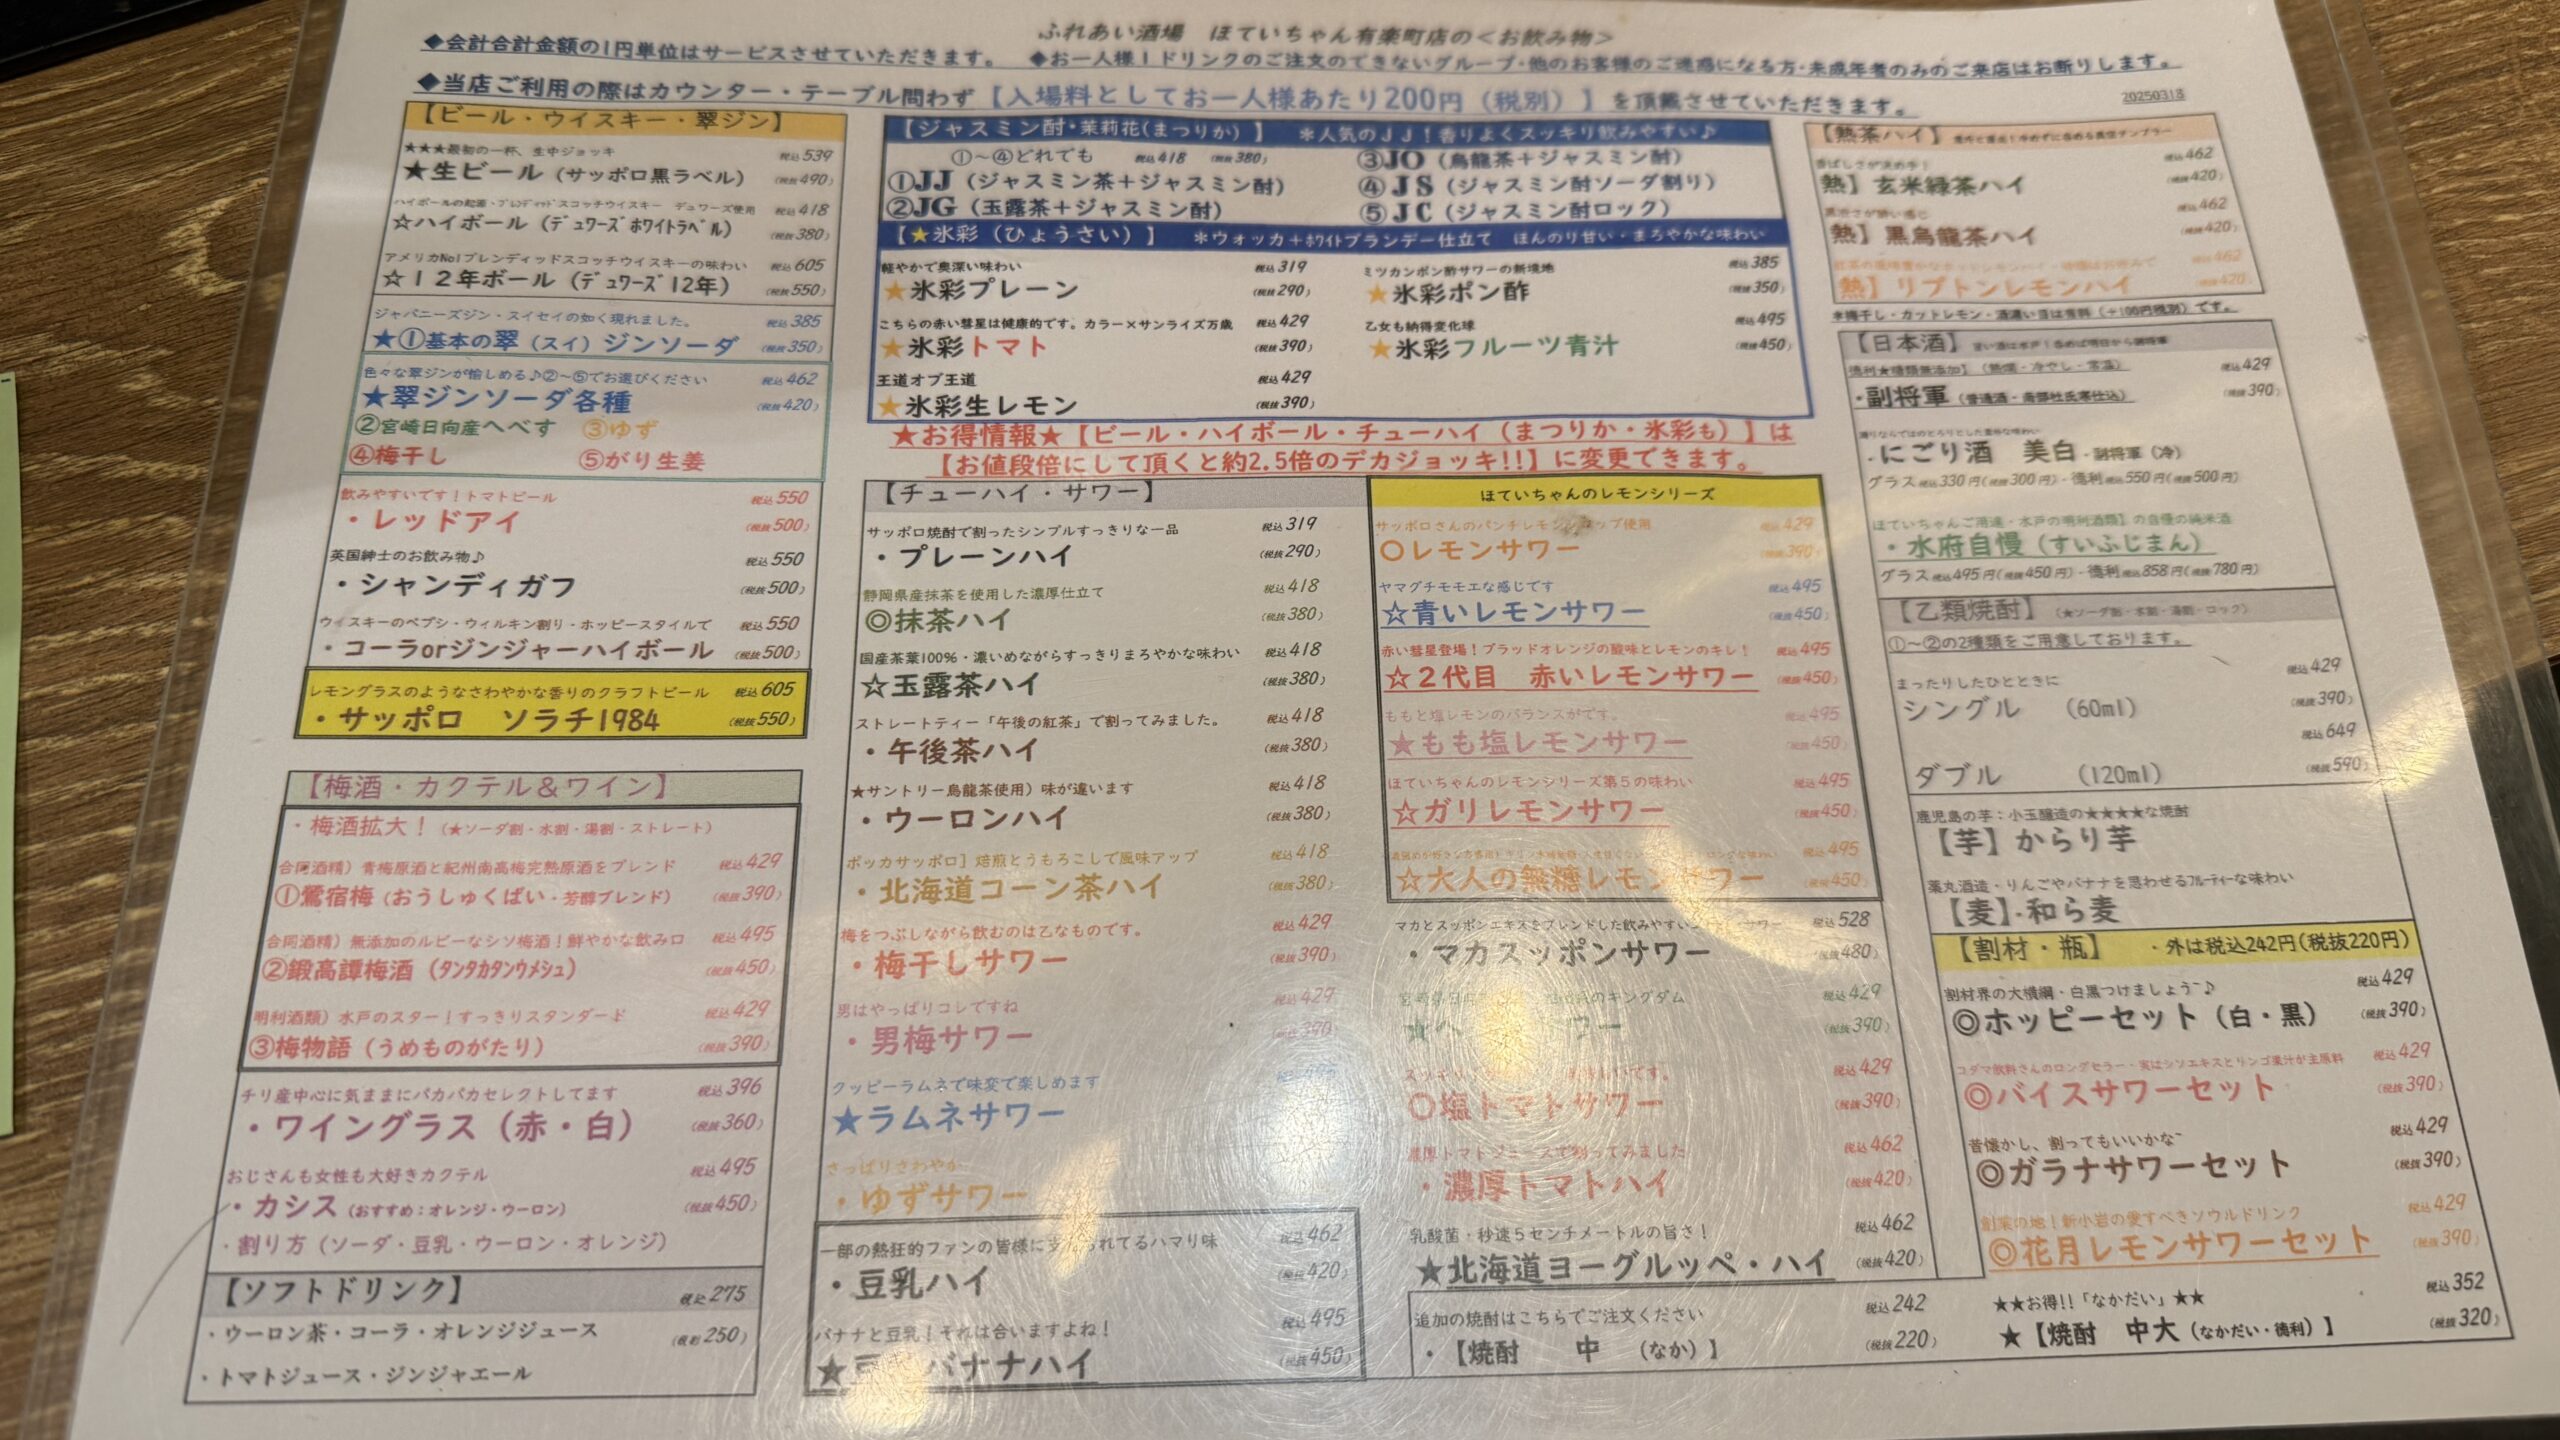 ふれあい酒場　ほていちゃん有楽町店の＜お飲み物＞
◆会計合計金額の1円単位はサービスさせていただきます。　◆お一人様1ドリンクのご注文のできないグループ・他のお客様のご迷惑になる方・未成年者のみのご来店はお断りします。
◆当店ご利用の際はカウンター・テーブル問わず【入場料としてお一人様あたり200円（税別）】を頂戴させていただきます。
20250318
【ビール・ウイスキー・翠ジン】
★★★最初の一杯、生中ジョッキ 税込539
★生ビール（サッポロ黒ラベル） （税抜490）
ハイボールの起源・ブレンデッドスコッチウイスキー　デュワーズ使用 税込418
☆ハイボール（デュワーズホワイトラベル） （税抜380）
アメリカNo1ブレンディッドスコッチウイスキーの味わい 税込605
☆12年ボール（デュワーズ12年） （税抜550）
ジャパニーズジン・スイセイの如く現れました。 税込385
★①基本の翠（スイ）ジンソーダ （税抜350）
色々な翠ジンが愉しめる♪②〜⑤でお選びください 税込462
★翠ジンソーダ各種 （税抜420）
②宮崎日向産へべす　③ゆず
④梅干し　⑤がり生姜
飲みやすいです！トマトビール 税込550
・レッドアイ （税抜500）
英国紳士のお飲み物♪ 税込550
・シャンディガフ （税抜500）
ウイスキーのペプシ・ウィルキン割り・ホッピースタイルで 税込550
・コーラorジンジャーハイボール （税抜500）
レモングラスのようなさわやかな香りのクラフトビール 税込605
・サッポロ　ソラチ1984 （税抜550）
【梅酒・カクテル＆ワイン】
・梅酒拡大！（★ソーダ割・水割・湯割・ストレート）
合同酒精）青梅原酒と紀州南高梅完熟原酒をブレンド 税込429
①鶯宿梅（おうしゅくばい・芳醇ブレンド） （税抜390）
合同酒精）無添加のルビーなシソ梅酒！鮮やかな飲み口 税込495
②鍛高譚梅酒（タンタカタンウメシュ） （税抜450）
明利酒類）水戸のスター！すっきりスタンダード 税込429
③梅物語（うめものがたり） （税抜390）
チリ産中心に気ままにバカバカセレクトしてます 税込396
・ワイングラス（赤・白） （税抜360）
おじさんも女性も大好きカクテル 税込495
・カシス（おすすめ：オレンジ・ウーロン） （税抜450）
・割り方（ソーダ・豆乳・ウーロン・オレンジ）
【ソフトドリンク】 税込275
・ウーロン茶・コーラ・オレンジジュース （税抜250）
・トマトジュース・ジンジャエール
【ジャスミン酎・茉莉花（まつりか）】　＊人気のJJ！香りよくスッキリ飲みやすい♪
①〜④どれでも　税込418　（税抜380）
①JJ（ジャスミン茶＋ジャスミン酎）
②JG（玉露茶＋ジャスミン酎）
③JO（烏龍茶＋ジャスミン酎）
④JS（ジャスミン酎ソーダ割り）
⑤JC（ジャスミン酎ロック）
【★氷彩（ひょうさい）】　＊ウォッカ＋ホワイトブランデー仕立て　ほんのり甘い・まろやかな味わい
軽やかで奥深い味わい 税込319
★氷彩プレーン （税抜290）
こちらの赤い彗星は健康的です。カラー×サンライズ万歳 税込429
★氷彩トマト （税抜390）
王道オブ王道 税込429
★氷彩生レモン （税抜390）
ミツカンポン酢サワーの新境地 税込385
★氷彩ポン酢 （税抜350）
乙女も納得変化球 税込495
★氷彩フルーツ青汁 （税抜450）
★お得情報★【ビール・ハイボール・チューハイ（まつりか・氷彩も）】は
【お値段倍にして頂くと約2.5倍のデカジョッキ!!】に変更できます。
【チューハイ・サワー】
サッポロ焼酎で割ったシンプルすっきりな一品 税込319
・プレーンハイ （税抜290）
静岡県産抹茶を使用した濃厚仕立て 税込418
◎抹茶ハイ （税抜380）
国産茶葉100%・濃いめながらすっきりまろやかな味わい 税込418
☆玉露茶ハイ （税抜380）
ストレートティー「午後の紅茶」で割ってみました。 税込418
・午後茶ハイ （税抜380）
★サントリー烏龍茶使用）味が違います 税込418
・ウーロンハイ （税抜380）
ポッカサッポロ】焙煎とうもろこしで風味アップ 税込418
・北海道コーン茶ハイ （税抜380）
梅をつぶしながら飲むのは乙なものです。 税込429
・梅干しサワー （税抜390）
男はやっぱりコレですね 税込429
・男梅サワー （税抜390）
クッピーラムネで味変で楽しめます
★ラムネサワー
さっぱりさわやか
・ゆずサワー
一部の熱狂的ファンの皆様に支えられてるハマり味 税込462
・豆乳ハイ （税抜420）
バナナと豆乳！それは合いますよね！ 税込495
★豆乳バナナハイ （税抜450）
ほていちゃんのレモンシリーズ
サッポロさんのパンチレモンシロップ使用 税込429
〇レモンサワー （税抜390）
ヤマグチモモエな感じです 税込495
☆青いレモンサワー （税抜450）
赤い彗星登場！ブラッドオレンジの酸味とレモンのキレ！ 税込495
☆2代目　赤いレモンサワー （税抜450）
ももと塩レモンのバランスがです。 税込495
★もも塩レモンサワー （税抜450）
ほていちゃんのレモンシリーズ第5の味わい 税込495
☆ガリレモンサワー （税抜450）
税込495
☆大人の無糖レモンサワー （税抜450）
マカとスッポンエキスをブレンドした飲みやすい サワー 税込528
・マカスッポンサワー （税抜480）
のキングダム 税込429
（税抜390）
税込429
〇塩トマトサワー （税抜390）
濃厚トマトジュースで割ってみました 税込462
・濃厚トマトハイ （税抜420）
乳酸菌・秒速5センチメートルの旨さ！ 税込462
★北海道ヨーグルッペ・ハイ （税抜420）
追加の焼酎はこちらでご注文ください 税込242
・【焼酎　中　（なか）】 （税抜220）
【熱茶ハイ】
香ばしさが決め手！ 税込462
熱】玄米緑茶ハイ （税抜420）
税込462
熱】黒烏龍茶ハイ （税抜420）
税込462
熱】リプトンレモンハイ （税抜420）
＊梅干し・カットレモン・酒濃い目は有料（＋100円税別）です。
【日本酒】
徳利★糖類無添加】（熱燗・冷やし・常温） 税込429
・副将軍（普通酒・南部杜氏寒仕込） （税抜390）
・にごり酒　美白・副将軍（冷）
グラス税込330円（税抜300円）・徳利税込550円（税抜500円）
ほていちゃんご用達・水戸の明利酒類】の自慢の純米酒
・水府自慢（すいふじまん）
グラス税込495円（税抜450円）・徳利税込858円（税抜780円）
【乙類焼酎】（★ソーダ割・水割・湯割・ロック）
①〜②の2種類をご用意しております。
まったりしたひとときに 税込429
シングル　（60ml） （税抜390）
税込649
ダブル　（120ml） （税抜590）
鹿児島の芋：小玉醸造の★★★★な焼酎
【芋】からり芋
薬丸酒造・りんごやバナナを思わせるフルーティーな味わい
【麦】・和ら麦
【割材・瓶】　・外は税込242円（税抜220円）
割材界の大横綱・白黒つけましょう~♪ 税込429
◎ホッピーセット（白・黒） （税抜390）
コダマ飲料さんのロングセラー・実はシソエキスとリンゴ果汁が主原料 税込429
◎バイスサワーセット （税抜390）
昔懐かし、割ってもいいかな~ 税込429
◎ガラナサワーセット （税抜390）
創業の地！新小岩の愛すべきソウルドリンク 税込429
◎花月レモンサワーセット （税抜390）
★★お得!!「なかだい」★★ 税込352
★【焼酎　中大（なかだい・徳利）】 （税抜320）